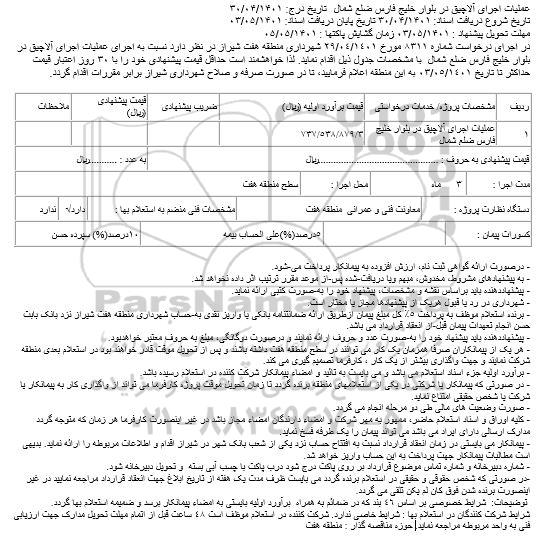 عملیات اجرای آلاچیق در بلوار خلیج فارس ضلع شمال   تاریخ درج: ۳۰/۰۴/۱۴۰۱
تاریخ شروع دریافت اسناد: ۳۰/۰۴/۱۴۰۱ تاریخ پایان دریافت اسناد: ۰۳/۰۵/۱۴۰۱
مهلت تحویل پیشنهاد : ۰۳/۰۵/۱۴۰۱ زمان گشایش پاکتها : ۰۵/۰۵/۱۴۰۱
در اجرای درخواست شماره ۸۳۱۱ مورخ ۲۹/۰۴/۱۴۰۱ شهرداری منطقه هفت شیراز در نظر دارد نسبت به اجرای عملیات اجرای آلاچیق در
بلوار خلیج فارس ضلع شمال  با مشخصات جدول ذیل اقدام نماید. لذا خواهشمند است حداقل قیمت پیشنهادی خود را با ۳۰ روز اعتبار قیمت
حداکثر تا تاریخ ۰۳/۰۵/۱۴۰۱ به این منطقه اعلام فرمایید، تا در صورت صرفه و صلاح شهرداری شیراز برابر مقررات اقدام گردد.
ردیف مشخصات پروژه/ خدمات درخواستی قیمت برآورد اولیه (ریال) ضریب پیشنهادی قیمت پیشنهادی (ریال) ملاحظات
۱ عملیات اجرای آلاچیق در بلوار خلیج فارس ضلع شمال ۷۳۷/۵۳۸/۸۷۹/۳
قیمت پیشنهادی به حروف : ............................................ریال به عدد : ...........ریال
مدت اجرا : ۳ ماه محل اجرا : سطح منطقه هفت
دستگاه نظارت پروژه : معاونت فنی و عمرانی منطقه هفت مشخصات فنی منضم به استعلام بها : دارد/۰ ندارد
کسورات پیمان : ۵درصد(%)علی الحساب بیمه ۱۰درصد(%) سپرده حسن
- درصورت ارائه گواهی ثبت نام، ارزش افزوده به پیمانکار پرداخت می‌شود.
- به پیشنهادهای مشروط، مخدوش، مبهم ویا دریافت‌شده پس‌از موعد مقرر ترتیب اثر داده نخواهد شد.
- پیشنهاددهنده باید براساس نقشه و مشخصات، پیشنهاد خود را به‌صورت کتبی ارائه نماید.
- شهرداری در رد یا قبول هریک از پیشنهادها مجاز یا مختار است.
- برنده استعلام موظف به پرداخت ۵٪ کل مبلغ پیمان ازطریق ارائه ضمانتنامه بانکی یا واریز نقدی به‌حساب شهرداری منطقه هفت شیراز نزد بانک بابت
حسن انجام تعهدات پیمان قبل‌از انعقاد قرارداد می باشد.
- پیشنهاددهنده باید پیشنهاد خود را به‌صورت عدد و حروف ارائه نمایند و درصورت دوگانگی، مبلغ به حروف معتبر خواهدبود.
- هر یک از پیمانکاران صرفا همزمان یک کار می توانند در سطح منطقه هفت داشته باشند و پس از تحویل موقت قادر خواهند بود در استعلام بعدی منطقه
شرکت نمایند و جهت واگذاری بیشتر از یک کار ، کارفرما تصمیم گیری می کند.
- برآورد اولیه جزء اسناد استعلام می باشد و می بایست به تائید و امضاء پیمانکار شرکت کننده در استعلام رسیده باشد.
- در صورتی که پیمانکار یا شرکتی در یکی از استعلامهای منطقه برنده گردد تا زمان تحویل موقت پروژه کارفرما می تواند از واگذاری کار به پیمانکار یا
شرکت یا شخص حقیقی امتناع نماید.
- صورت وضعیت های مالی طی دو مرحله انجام می گردد.
- کلیه اوراق و اسناد استعلام حاضر، ممهور به مهر شرکت و امضاء دارندگان امضاء مجاز باشد در غیر اینصورت کارفرما هر زمان که متوجه گردد
مدارک ارسالی دارای ایراد می باشد می تواند پیمان را یک طرفه فسخ نماید.
- پیمانکار می بایستی در زمان انعقاد قرارداد نسبت به افتتاح حساب نزد یکی از شعب بانک شهر در شیراز اقدام و اطلاعات مربوطه را ارائه نماید. بدیهی
است مطالبات پیمانکار جهت پرداخت به این حساب واریز خواهد شد.
- شماره دبیرخانه و شماره تماس موضوع قرارداد بر روی پاکت درج شود درب پاکت با چسب آبی بسته و تحویل دبیرخانه شود.
-در صورتی که شخص حقوقی و حقیقی در استعلام برنده گردد می بایست ظرف مدت یک هفته از تاریخ ابلاغ جهت انعقاد قرارداد مراجعه نمایید در غیر
اینصورت برنده شدن فوق کان لم یکن تلقی می گردد.
توضیحات:  شرایط خصوصی بر اساس ۴۶ بند که در ضمائم به همراه  برآورد اولیه بایستی به امضاء پیمانکار برسد و ضمیمه استعلام بها گردد.
شرایط شرکت کنندگان در استعلام بها : شرایط خاصی ندارد. شرکت کننده در استعلام موظف است ۴۸ ساعت قبل از اتمام مهلت تحویل مدارک جهت ارزیابی
فنی به واحد مربوطه مراجعه نماید|حوزه مناقصه گذار : منطقه هفت